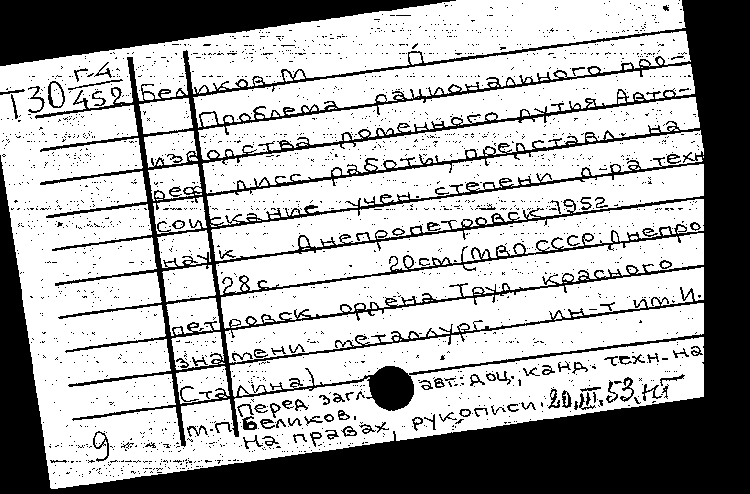 Т30 г-4/452 Беликов, М П
Проблема рационалиного про-
изводства доменного дутья. Авто-
реф. дисс. работы, представл. на
соискание учен. степени д-ра техн
наук. Днепропетровск, 1952
28 с. 20 см. (МВО СССР. Днепро
петровск. ордена Труд. красного
знамени металлург. ин-т им. И.
Сталина).
Перед загл. авт: доц., канд. техн. на
М.П. Беликов.
На правах, рукописи. 20.III.53.
9